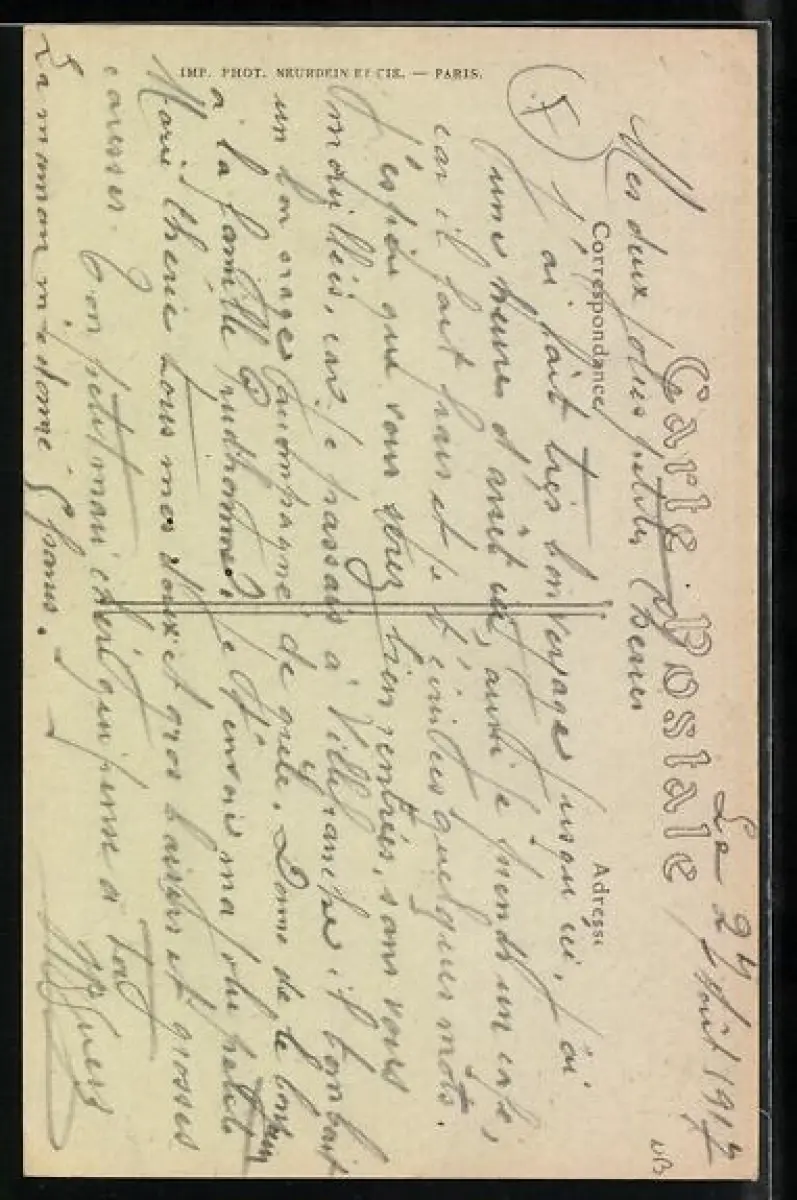 IMP. PHOT. NEURDEIN ET CIE. — PARIS.
Carte Postale
Correspondance
Adresse
Le 24 Août 1917
Mes deux jolies petites Chéries
J'ai fait très bon voyage jusqu'ici, j'ai
une heure d'arrêt ici, aussi je prends un café,
car il fait frais et je t'écris quelques mots.
J'espère que vous serez bien rentrées, sans vous
mouiller, car je passais à Villefranche il tombait
un bon orage accompagné de grêle. Donne de
à la famille Prudhomme. Je t'envoie ma jolie petite
Marie Chérie tous mes doux et gros baisers et grosses
caresses. Ton petit mari chéri qui pense à toi
La maman m'a donné 5 francs.
(F)
NB